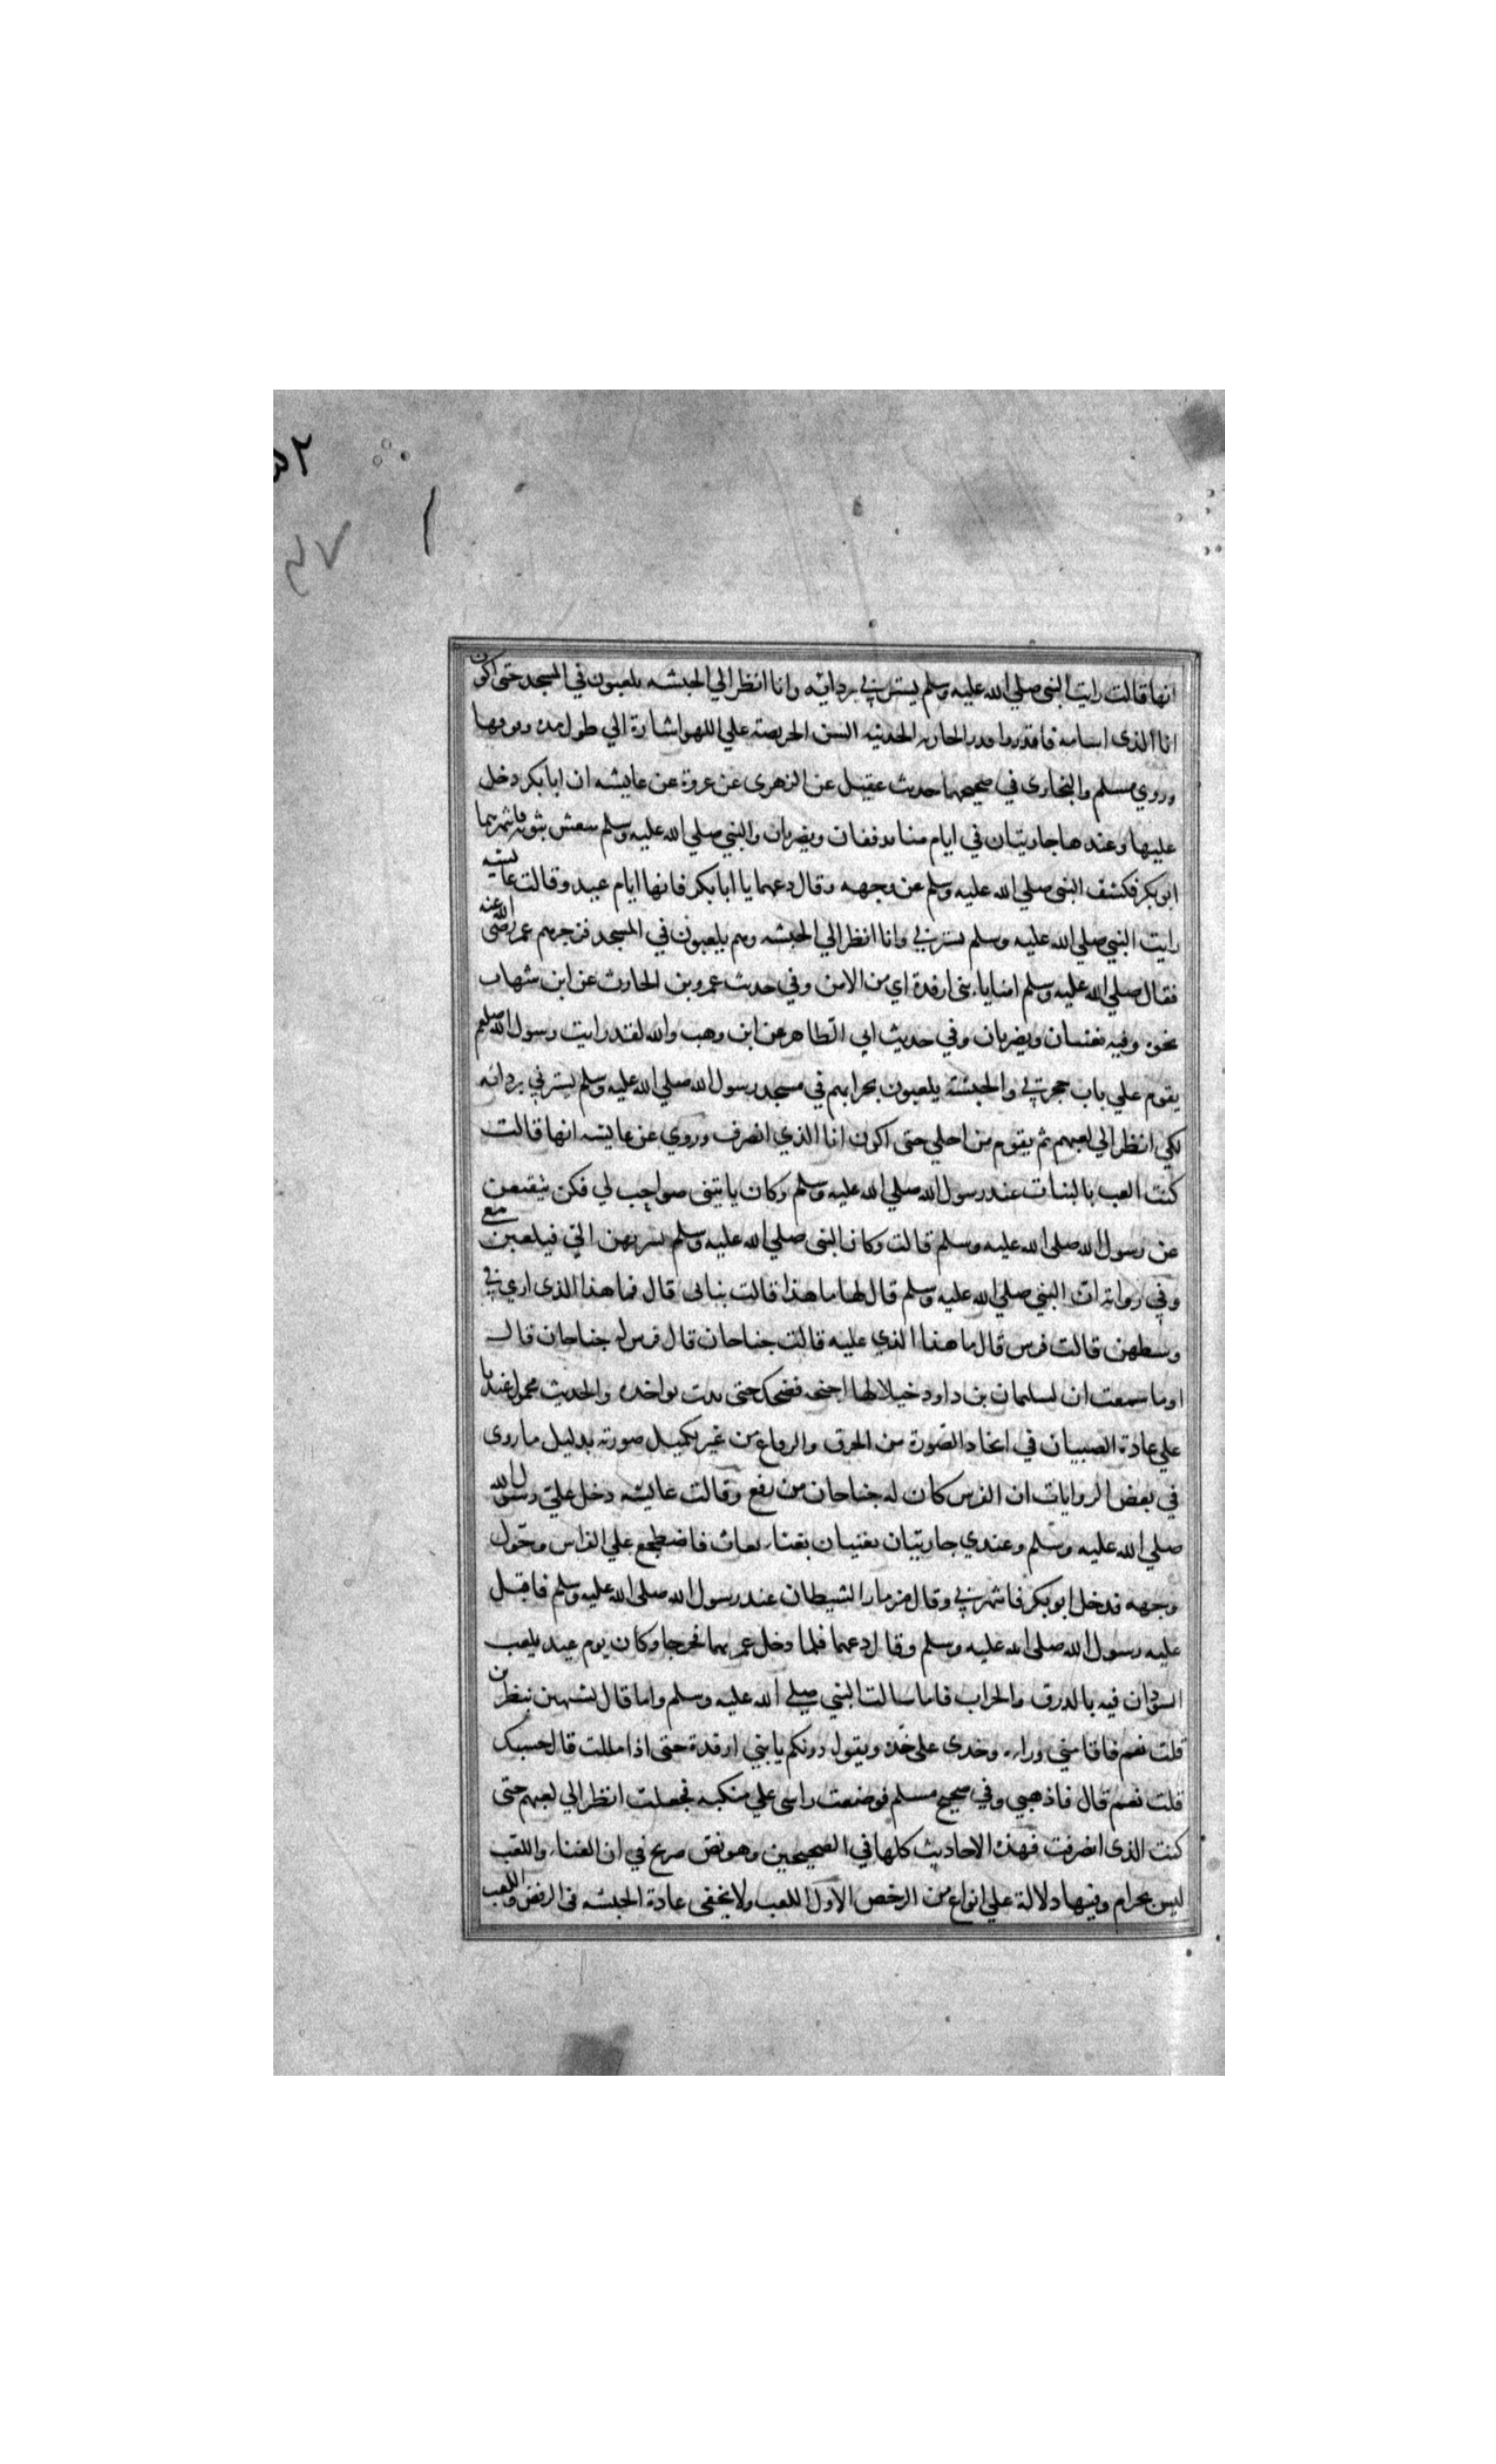 ٥٢
٤٧
١
انها قالت رايت النبي صلي الله عليه وسلم يسترني بردائه وانا انظر الي الحبشه يلعبون في المسجد حتى اكون
انا الذي اسامه فاقدروا قدر الجاريه الحديثه السن الحريصة علي اللهو اشارة الي طول مدة وقوفها
وروي مسلم والبخاري في صحيحهما حديث عقيل عن الزهري عن عروة عن عايشه ان ابا بكر دخل
عليها وعندها جاريتان في ايام منا تدففان ويضربان والنبي صلي الله عليه وسلم متغش بثوبه فانتهرهما
ابو بكر فكشف النبي صلي الله عليه وسلم عن وجهه وقال دعهما يا ابا بكر فانها ايام عيد وقالت عايشه
رايت النبي صلي الله عليه وسلم يسترني وانا انظر الي الحبشه وهم يلعبون في المسجد فزجرهم عمر رضي الله عنه
فقال صلي الله عليه وسلم امنا يا بني ارفدة اي من الامن وفي حديث عمرو بن الحارث عن ابن شهاب
نحوه وفيه تغنيان ويضربان وفي حديث ابي الطاهر عن ابن وهب والله لقد رايت رسول الله صلعم
يقوم علي باب حجرتي والحبشة يلعبون بحرابهم في مسجد رسول الله صلي الله عليه وسلم يسترني بردائه
لكي انظر الي لعبهم ثم يقوم من اجلي حتى اكون انا الذي انصرف وروي عن عايشه انها قالت
كنت العب بالبنات عند رسول الله صلي الله عليه وسلم وكان ياتيني صواحب لي فكن يتقمعن
عن رسول الله صلى الله عليه وسلم قالت وكان النبي صلي الله عليه وسلم يسربهن الي فيلعبن معي
وفي رواية ان النبي صلي الله عليه وسلم قال لها ما هذا قالت بناتي قال فما هذا الذي اري في
وسطهن قالت فرس قال ما هذا الذي عليه قالت جناحان قال فرس له جناحان قالت
اوما سمعت ان لسليمان بن داود خيلا لها اجنحه فضحك حتى بدت نواجذه والحديث محمول عندنا
علي عادة الصبيان في اتخاذ الصورة من الخرق والرقاع من غير تكميل صورته بدليل ما روي
في بعض الروايات ان الفرس كان له جناحان من رقع وقالت عايشه دخل علي رسول الله
صلي الله عليه وسلم وعندي جاريتان يغنيان بغناء بعاث فاضطجع علي الفراش وحول
وجهه فدخل ابو بكر فانتهرني وقال مزمار الشيطان عند رسول الله صلى الله عليه وسلم فاقبل
عليه رسول الله صلى الله عليه وسلم وقال دعهما فلما دخل عمر بهما فخرجا وكان يوم عيد يلعب
السودان فيه بالدرق والحراب فاما سالت النبي صلي الله عليه وسلم واما قال تشتهين تنظرين
قلت نعم فاقامني وراءه وخدي على خده ويقول دونكم يا بني ارفدة حتى اذا مللت قال حسبك
قلت نعم قال فاذهبي وفي صحيح مسلم فوضعت راسي علي منكبه فجعلت انظر الي لعبهم حتى
كنت الذي انصرفت فهذه الاحاديث كلها في الصحيحين وهو نص صريح في ان الغناء واللعب
ليس بحرام وفيها دلالة علي انواع من الرخص الاول اللعب ولا يخفى عادة الحبشه في الرقص واللعب